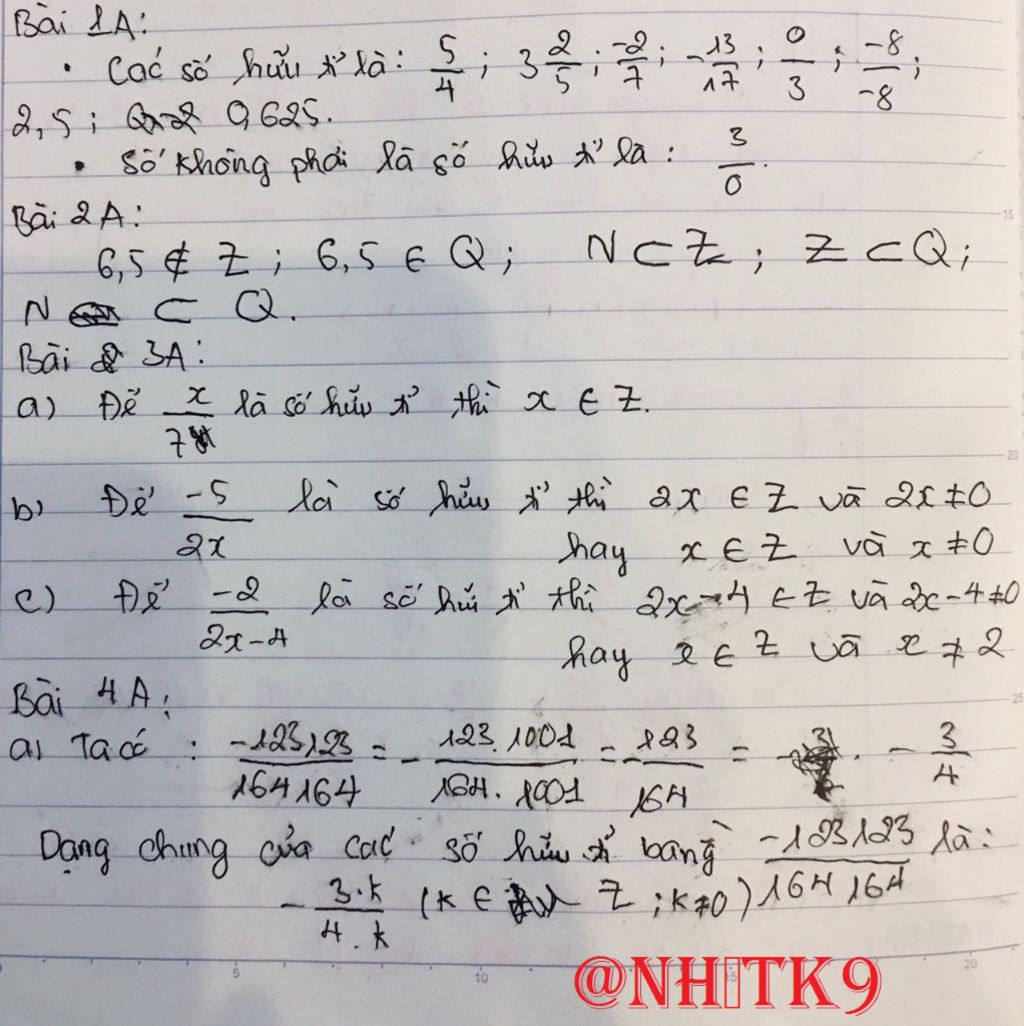 Bài 1A:
• Các số hữu tỉ là: 5/4; 3 2/5; -2/7; -13/17; 0/3; -8/-8;
2,5; 0,625.
• Số không phải là số hữu tỉ là: 3/0.
Bài 2A:
6,5 ∉ Z; 6,5 ∈ Q; N ⊂ Z; Z ⊂ Q;
N ⊂ Q.
Bài 3A:
a) Để x/7 là số hữu tỉ thì x ∈ Z.
b) Để -5/2x là số hữu tỉ thì 2x ∈ Z và 2x ≠ 0
hay x ∈ Z và x ≠ 0
c) Để -2/2x-4 là số hữu tỉ thì 2x-4 ∈ Z và 2x-4 ≠ 0
hay x ∈ Z và x ≠ 2
Bài 4A:
a) Ta có: -123123/164164 = - 123.1001/164.1001 = - 123/164 = - 3/4
Dạng chung của các số hữu tỉ bằng -123123/164164 là:
- 3.k/4.k (k ∈ Z; k≠0)
15
20
25
5 10 20
@NH▯TK9